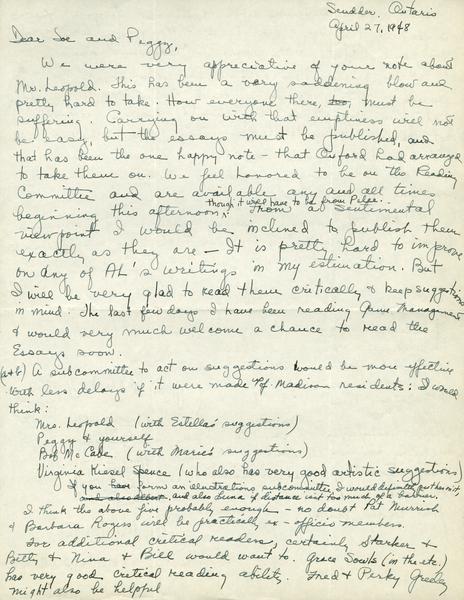 Scudder, Ontario
April 27, 1948
Dear Joe and Peggy,
We were very appreciative of your note about
Mr. Leopold. This has been a very saddening blow and
pretty hard to take. How everyone there, too, must be
suffering. Carrying on with that emptiness will not
be easy, but the essays must be published, and
that has been the one happy note - that Oxford had arranged
to take them on. We feel honored to be on the Reading
Committee and are available any and all times
though it will have to be from Pelee.
beginning this afternoon. From a sentimental
viewpoint I would be inclined to publish them
exactly as they are - It is pretty hard to improve
on any of AL's writings in my estimation. But
I will be very glad to read them critically & keep suggestions
in mind. The last few days I have been reading Game Management
& would very much welcome a chance to read the
Essays soon.
(a+b) A subcommittee to act on suggestions would be more effective
with less delays if it were made up of Madison residents: I would
think:
Mrs. Leopold (with Estella's suggestions)
Peggy & yourself
Bob McCabe (with Marie's suggestions)
Virginia Kiesel Spence (who also has very good artistic suggestions)
If you have form an illustrations subcommittee, I would definitely put her on it,
and also Luna if distance isn't too much of a barrier.
I think the above five probably enough - no doubt Pat Murrish
& Barbara Rogers will be practically ex-officio members.
For additional critical readers, certainly Starker &
Betty & Nina & Bill would want to. Grace Sowls (in the etc.)
has very good critical reading ability. Fred & Perky Greeley
might also be helpful